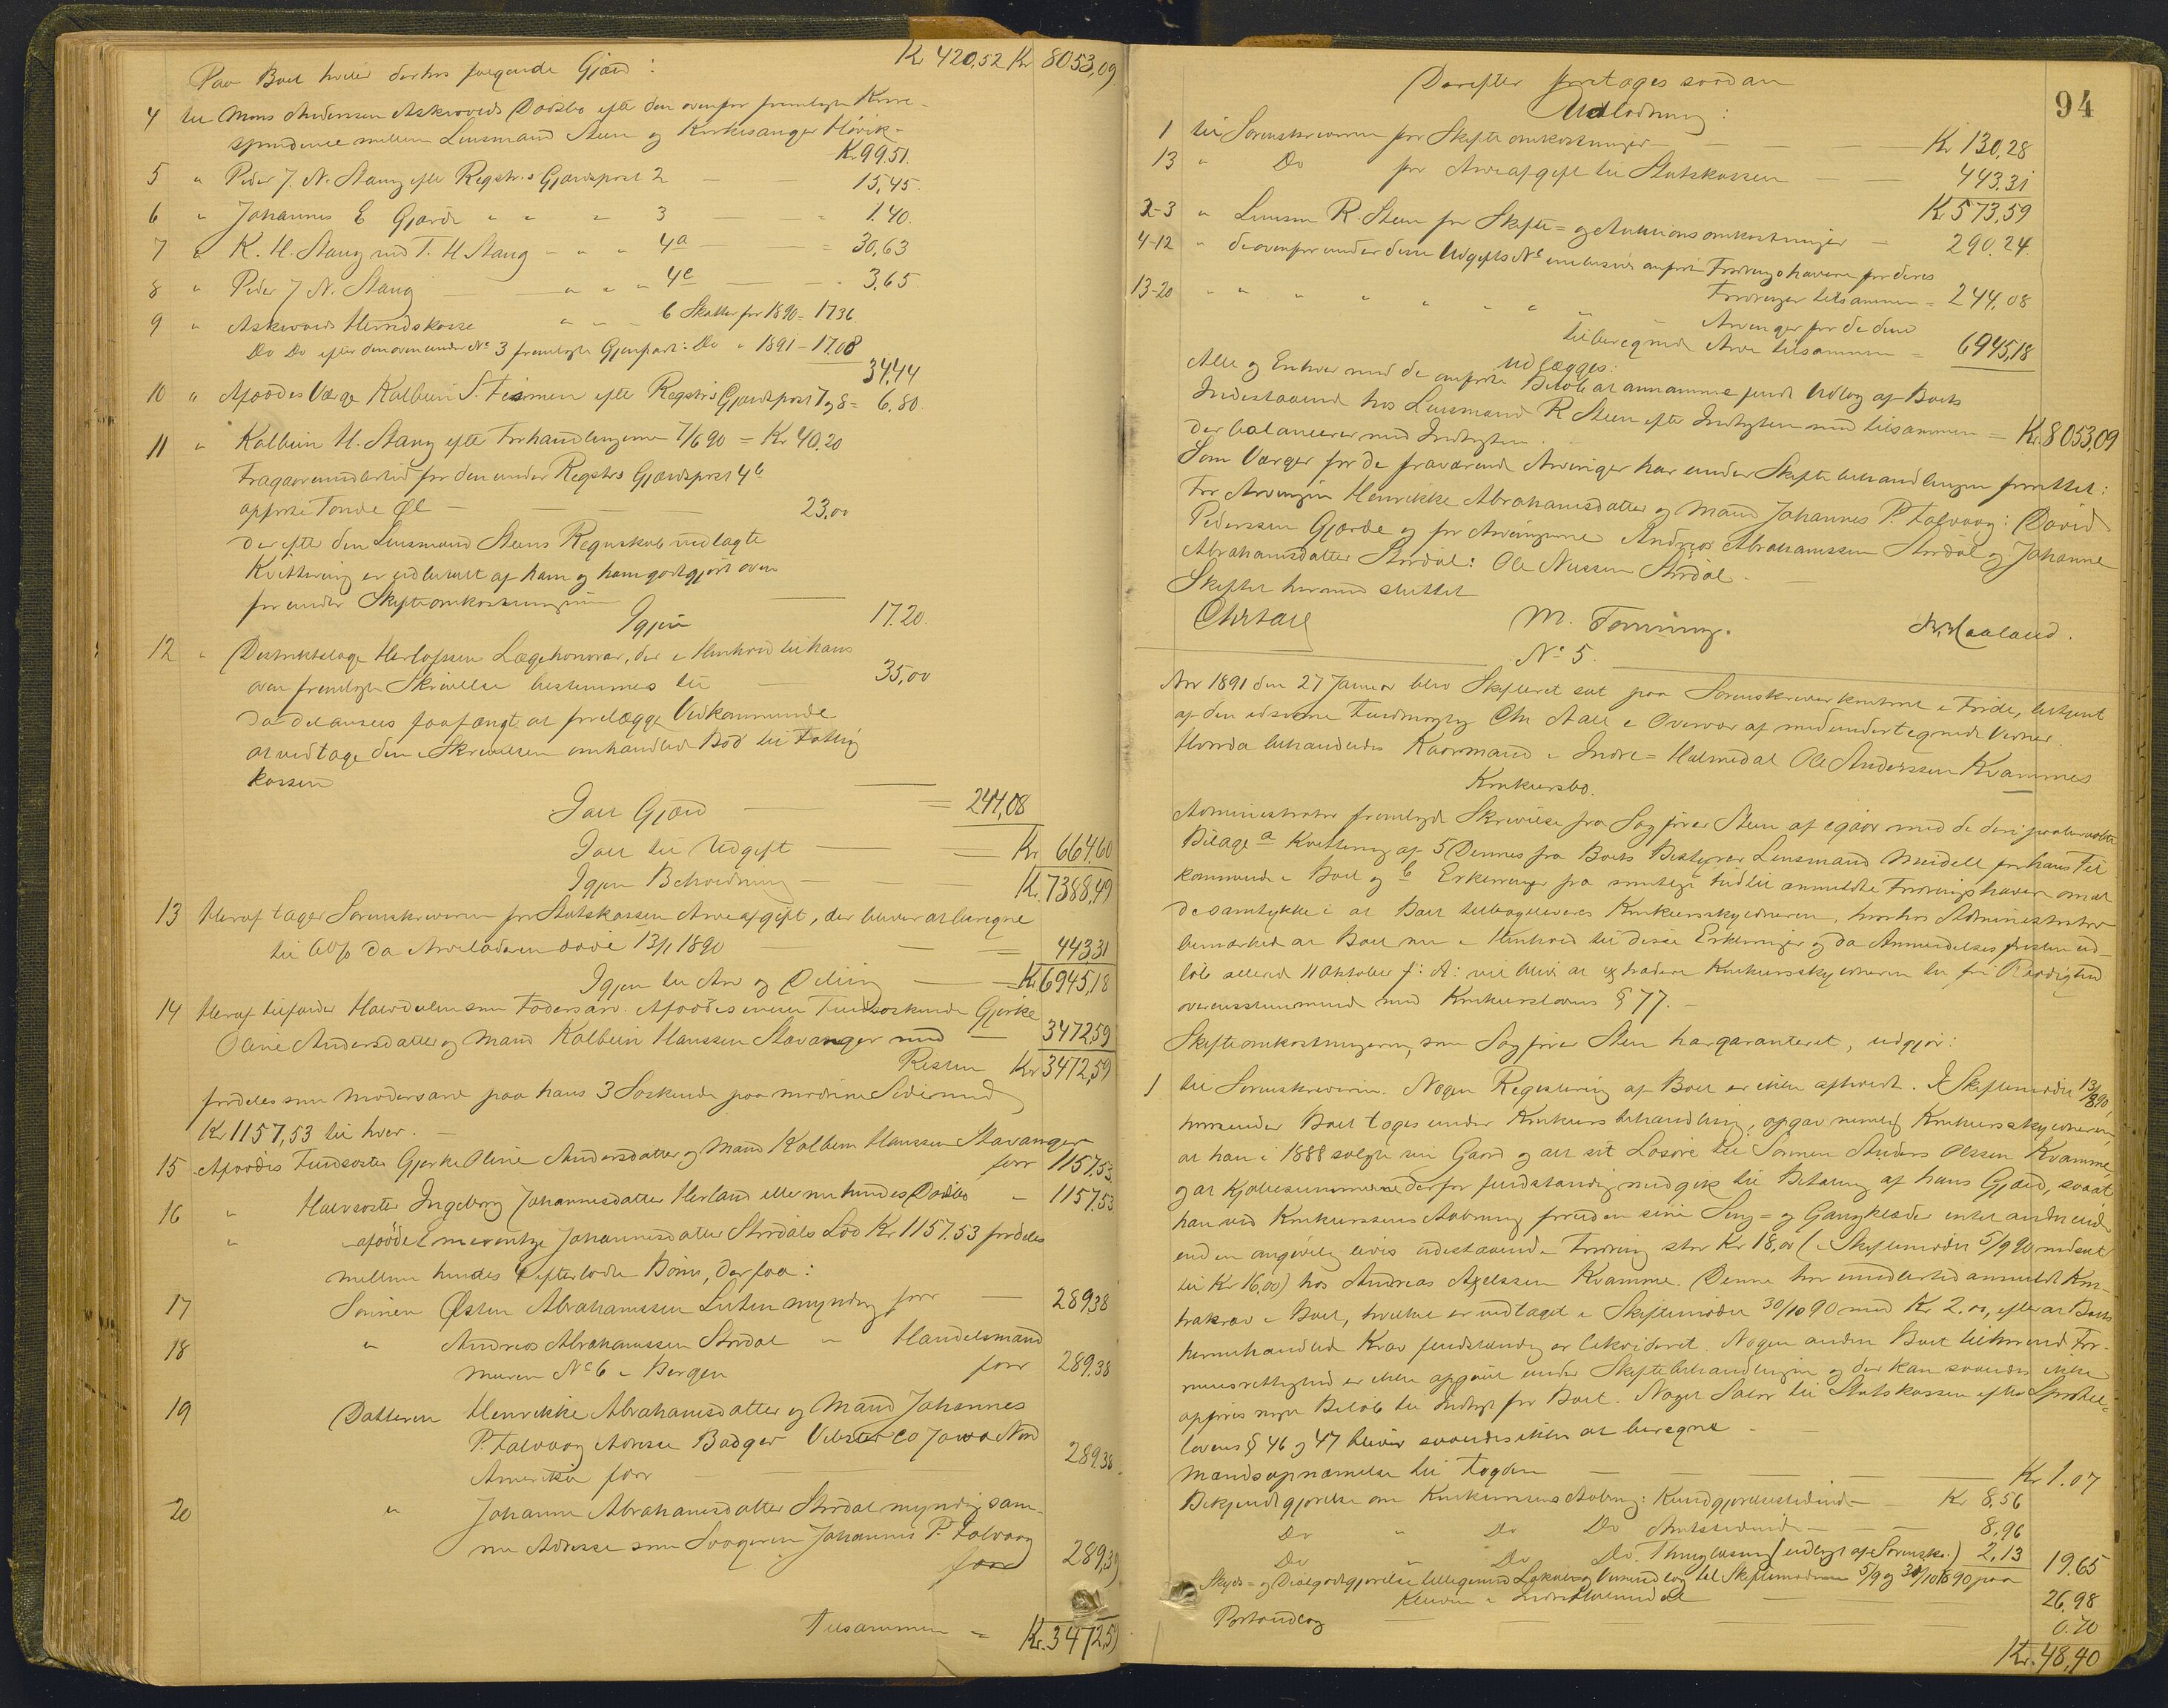 Kr 420,52 Kr 8053,09
Paa Boet hviler derhos følgende Gjæld:
4 til Mons Andersen Askvolds Dødsbo efter den ovenfor fremlagte Korre-
spondence mellem Lensmand Steen og Kirkesanger Høvik - Kr 99.51.
5 " Peder J. N. Stang efter Regstr.s Gjældspost 2 — 15,45.
6 " Johannes E Gjærde " " " 3 — 1.40.
7 " K. H. Stang ved T. H Stang " " " 4a — = 30,63
8 " Peder J N. Stang " " " 4c — 3,65
9 " Askvolds Herredskasse " " " 6 Skatter for 1890 = 1736
Do Do efter den oven under No 3 fremlagte Gjenpart: Do " 1891 - 17.08
34,44
10 " Afdødes Værge Kolbein S. efter Regstrs Gjældspost 7 og 8 = 6,80.
11 " Kolbein H. Stang efter Forhandlingerne 7/6 90 = Kr 40,20
Fragaar imidlertid for den under Regstrs Gjældspost 4b
opførte Tønde Øl — 23,00
der efter den Lensmand Steens Regnskab vedlagte
Kvittering er udbetalt af ham og ham godtgjort oven
for under Skifteomkostningerne
Igjen — 17.20.
12 " Distriktslæge Herlofssen Lægehonorar, der i Henhold til hans
oven fremlagte Skrivelse bestemmes til — 35,00
da det ansees forfængt at forelægge Vedkommende
at vedtage den i Skrivelsen omhandlede Bod til Fattig
kassen
Ialt Gjæld — = 244,08
Ialt til Udgift — = Kr 664,60
Igjen Beholdning — Kr. 7388,49
13 Heraf tager Sorenskriveren for Statskassen Arveafgift, der bliver at beregne
til 6 % da Arveladeren døde 13/1 1890 — = 443,31
Igjen til Arv og Deling — Kr 6945,18
14 Heraf tilfalder Halvdelen som Fædrearv Afdødes eneste Fuldsøskende Gjerke
Oline Andersdatter og Mand Kolbein Hanssen Stavanger med — 3472,59
Resten Kr 3472,59
fordeles som Mødrearv paa hans 3 Søskende paa mødrene Side med
Kr 1157,53 til hver. —
15 Afdødes Fuldsøster Gjerke Oline Andersdatter og Mand Kolbein Hanssen Stavanger
faar 1157.53.
16 " Halvsøster Ingeborg Johannesdatter Herland eller nu hendes Dødsbo — 1157.53
" afdøde Johannesdatter Stordals Lod Kr 1157.53 fordeles
mellem hendes 4 efterladte Børn, der faa:
17 Sønnen Østen Abrahamssen myndig faar — 289,38
18 " Andreas Abrahamssen Stordal " Handelsmand
Muren No 6 i Bergen faar 289.38
19 Datteren Henrikke Abrahamsdatter og Mand Johannes
P. Talvaag Adresse Badger Vebster Co Jowa Nord
Amerika faar — 289.38.
20 " Johanne Abrahamsdatter Stordal myndig sam-
me Adresse som Svogeren Johannes P. Talvaag
faar 289,39
Tilsammen = Kr. 3472,59
94
Derefter foretages saadan
Udlodning:
1 til Sorenskriveren for Skifteomkostninger — Kr 130,28
13 " Do for Arveafgift til Statskassen — 443.31
Kr 573,59
2-3 " Lensm R. Steen for Skifte- og Auktionsomkostninger — 290.24.
4-12 " de ovenfor under disse Udgifts No inclusive anførte Fordringshavere for deres
Fordringer tilsammen = 244,08
13-20 " " " " " " " Arvinger for de dem
tilberegnede Arv tilsammen = 6945,18
udlægges:
Alle og Enhver med de anførte Beløb at annamme fuldt Udlæg af Boets
Indestaaende hos Lensmand R Steen efter Indtægten med tilsammen = Kr. 8053,09
der balancerer med Indtægten.
Som Værger for de fraværende Arvinger har under Skiftebehandlingen forrettet:
For Arvingen Henrikke Abrahamsdatter og Mand Johannes P. Talvaag: David
Pederssen Gjærde og for Arvingerne Andreas Abrahamssen Stordal og Johanne
Abrahamsdatter Stordal: Ole Nilssen Stordal —
Skiftet hermed sluttet
Chr Aall M. Fonning. Haaland.
No 5.
Aar 1891 den 27 Januar blev Skifteret sat paa Sorenskriverkontoret i Førde, betjent
af den edsvorne Fuldmægtig Chr Aall i Overvær af medundertegnede Vidner.
Hvorda behandledes Kaarmand i Indre-Holmedal Ole Anderssen Kvammes
Konkursbo.
Administrator fremlagde Skrivelse fra Sagfører Steen af igaar med de deri paaberaabte
Bilage a Kvittering af 5 Dennes fra Boets Bestyrer Lensmand Meidell for hans Til
kommende i Boet og b Erkleringer fra samtlige hidtil anmeldte Fordringshavere om at
de samtykke i at Boet tilbageleveres Konkursskyldneren, hvorhos Administrator
bemærkede at Boet nu i Henhold til disse Erkleringer og da Anmeldelsesfristen ud-
løb allerede 11 Oktober f: A: vil blive at extradere Konkursskyldneren til fri Raadighed
overensstemmende med Konkurslovens § 77. —
Skifteomkostningerne, som Sagfører Steen har garanteret, udgjør:
1 til Sorenskriveren. Nogen Registrering af Boet er ikke afholdt. I Skiftemødet 13/8 90,
hvorunder Boet toges under Konkursbehandling, opgav nemlig Konkursskyldneren,
at han i 1888 solgte sin Gaard og alt sit Løsøre til Sønnen Anders Olssen Kvamme,
og at Kjøbesummerne derfor fuldstændig medgik til Betaling af hans Gjæld, saaat
han ved Konkurssens Aabning foruden sine Seng- og Gangklæder intet andet eied
end en angivelig usikker udestaaende Fordring stor Kr 18,00 (i Skiftemødet 5/9 90 nedsat
til Kr 16,00) hos Andreas Axelssen Kvamme. Denne har imidlertid anmeldt Kon-
trakrav i Boet, hvilket er vedtaget i Skiftemødet 30/10 90 med Kr 2.00, efter at Boets
heromhandlede Krav fuldstændig er likvideret. Nogen anden Boet tilhørende For-
muesrettighed er ikke opgivet under Skiftebehandlingen og der kan saaledes ikke
opføres noget Beløb til Indtægt for Boet. Noget Salær til Statskassen efter Sportel-
lovens § 46 og 47 bliver saaledes ikke at beregne —
Mandsopnævnelse til Togden — Kr 1.07
Bekjendtgjørelse om Konkurssens Aabning: Kundgjørelsestidende — Kr 8,56
Do " Do Do Amtstidende — 8,96
Do " Do Do. Thinglæsning (udlagt af Sorenskr.) 2,13 19,65
Skyds- og Diætgodtgjørelse tilligemed Lokale og Vidneudlæg til Skiftemøderne 5/9 og 30/10 1890 paa
i Indre Holmedal — 26,98
Portoudlæg — 0.70
Kr. 48,40